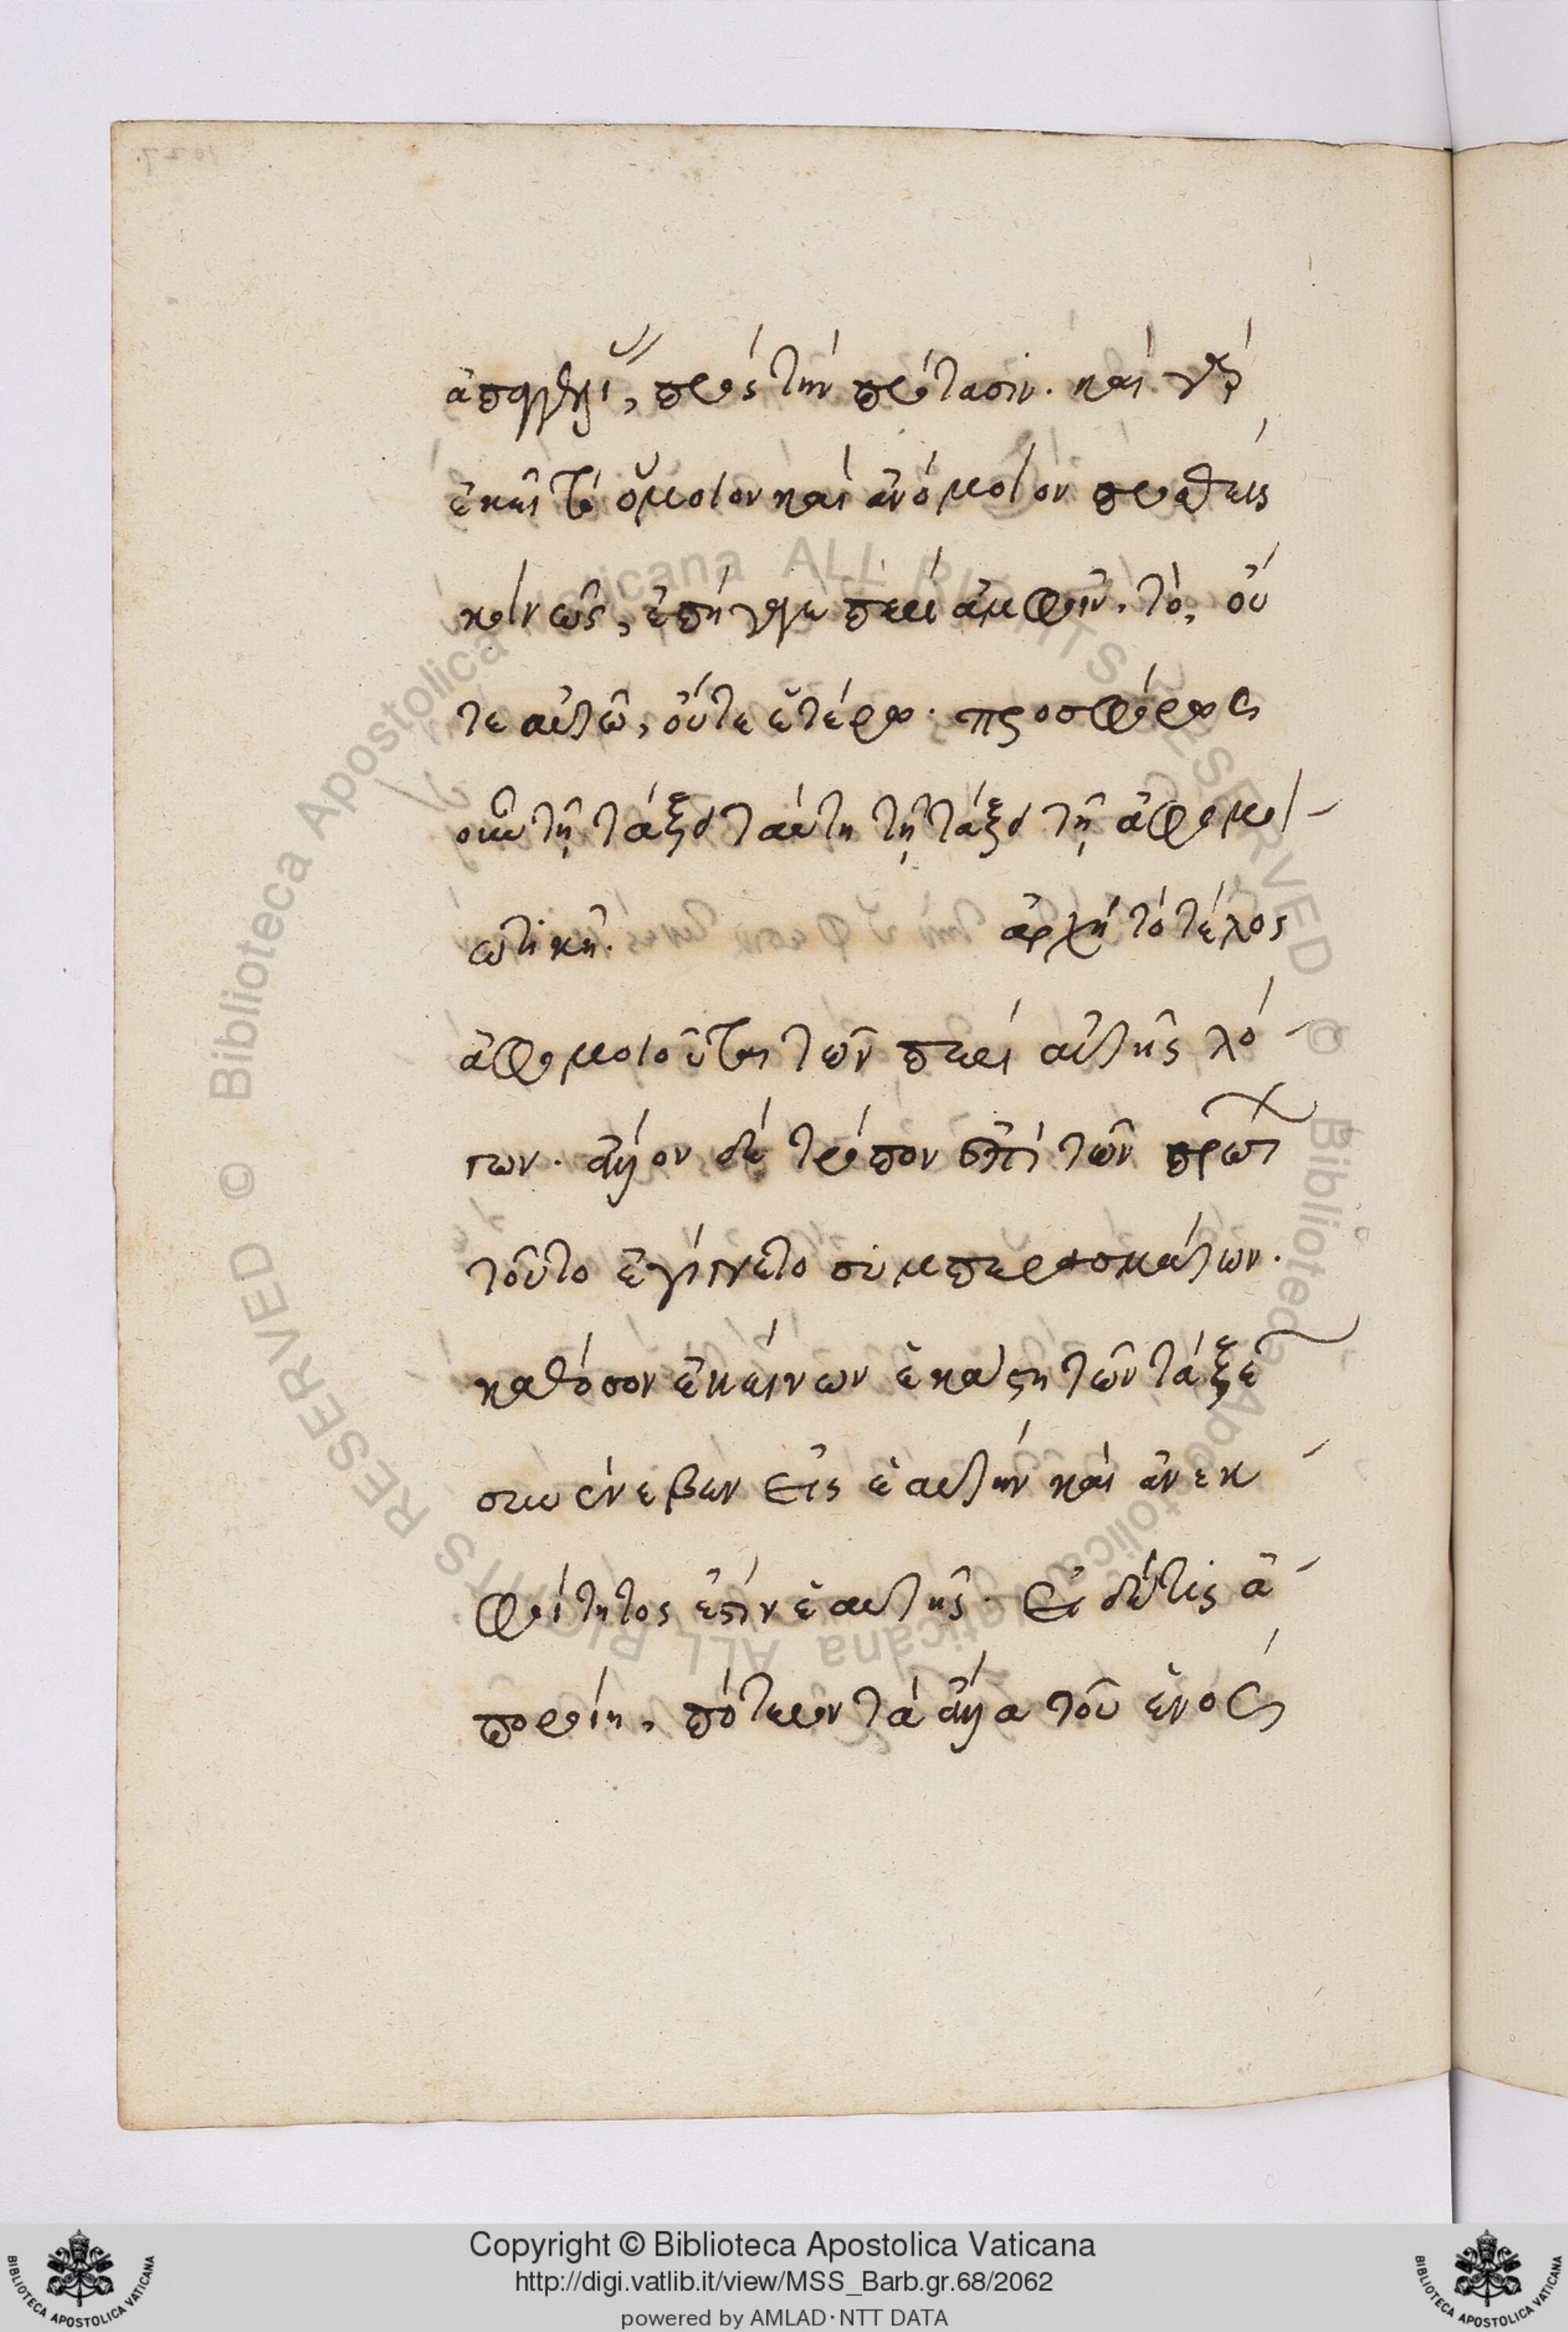 πρὸς τὴν πρότασιν. καὶ γὰρ
ἐκεῖ τὸ ὅμοιον καὶ ἀνόμοιον προθεὶς
κοινῶς, ἐπήγαγε περὶ ἀμφοῖν. τὸ, οὔ
τε αὐτῶ, οὔτε ἑτέρω. προσφόρως
οὖν τῆ τάξει ταύτη τῆ τάξει τῆ ἀφομοι-
ωτικῆ. ἀρχὴ τὸ τέλος
ἀφομοιοῦται τῶν περὶ αὐτῆς λό-
γων. ἄλλον δὲ τρόπον ἐπὶ τῶν πρώτ
τοῦτο ἐγίγνετο συμπερασμάτων.
καθόσον ἐκείνων ἑκάστη τῶν τάξε
συνένευεν εἰς ἑαυτὴν καὶ ἀνεκ-
φοίτητος ἐστὶν ἑαυτῆς. Εἰ δέ τις ἀ-
ποροίη, πότερον τὰ ἄλλα τοῦ ἑνὸς
Copyright © Biblioteca Apostolica Vaticana
http://digi.vatlib.it/view/MSS_Barb.gr.68/2062
powered by AMLAD · NTT DATA
BIBLIOTECA APOSTOLICA VATICANA
BIBLIOTECA APOSTOLICA VATICANA
© Biblioteca Apostolica Vaticana ALL RIGHTS RESERVED
© Biblioteca Apostolica Vaticana ALL RIGHTS RESERVED